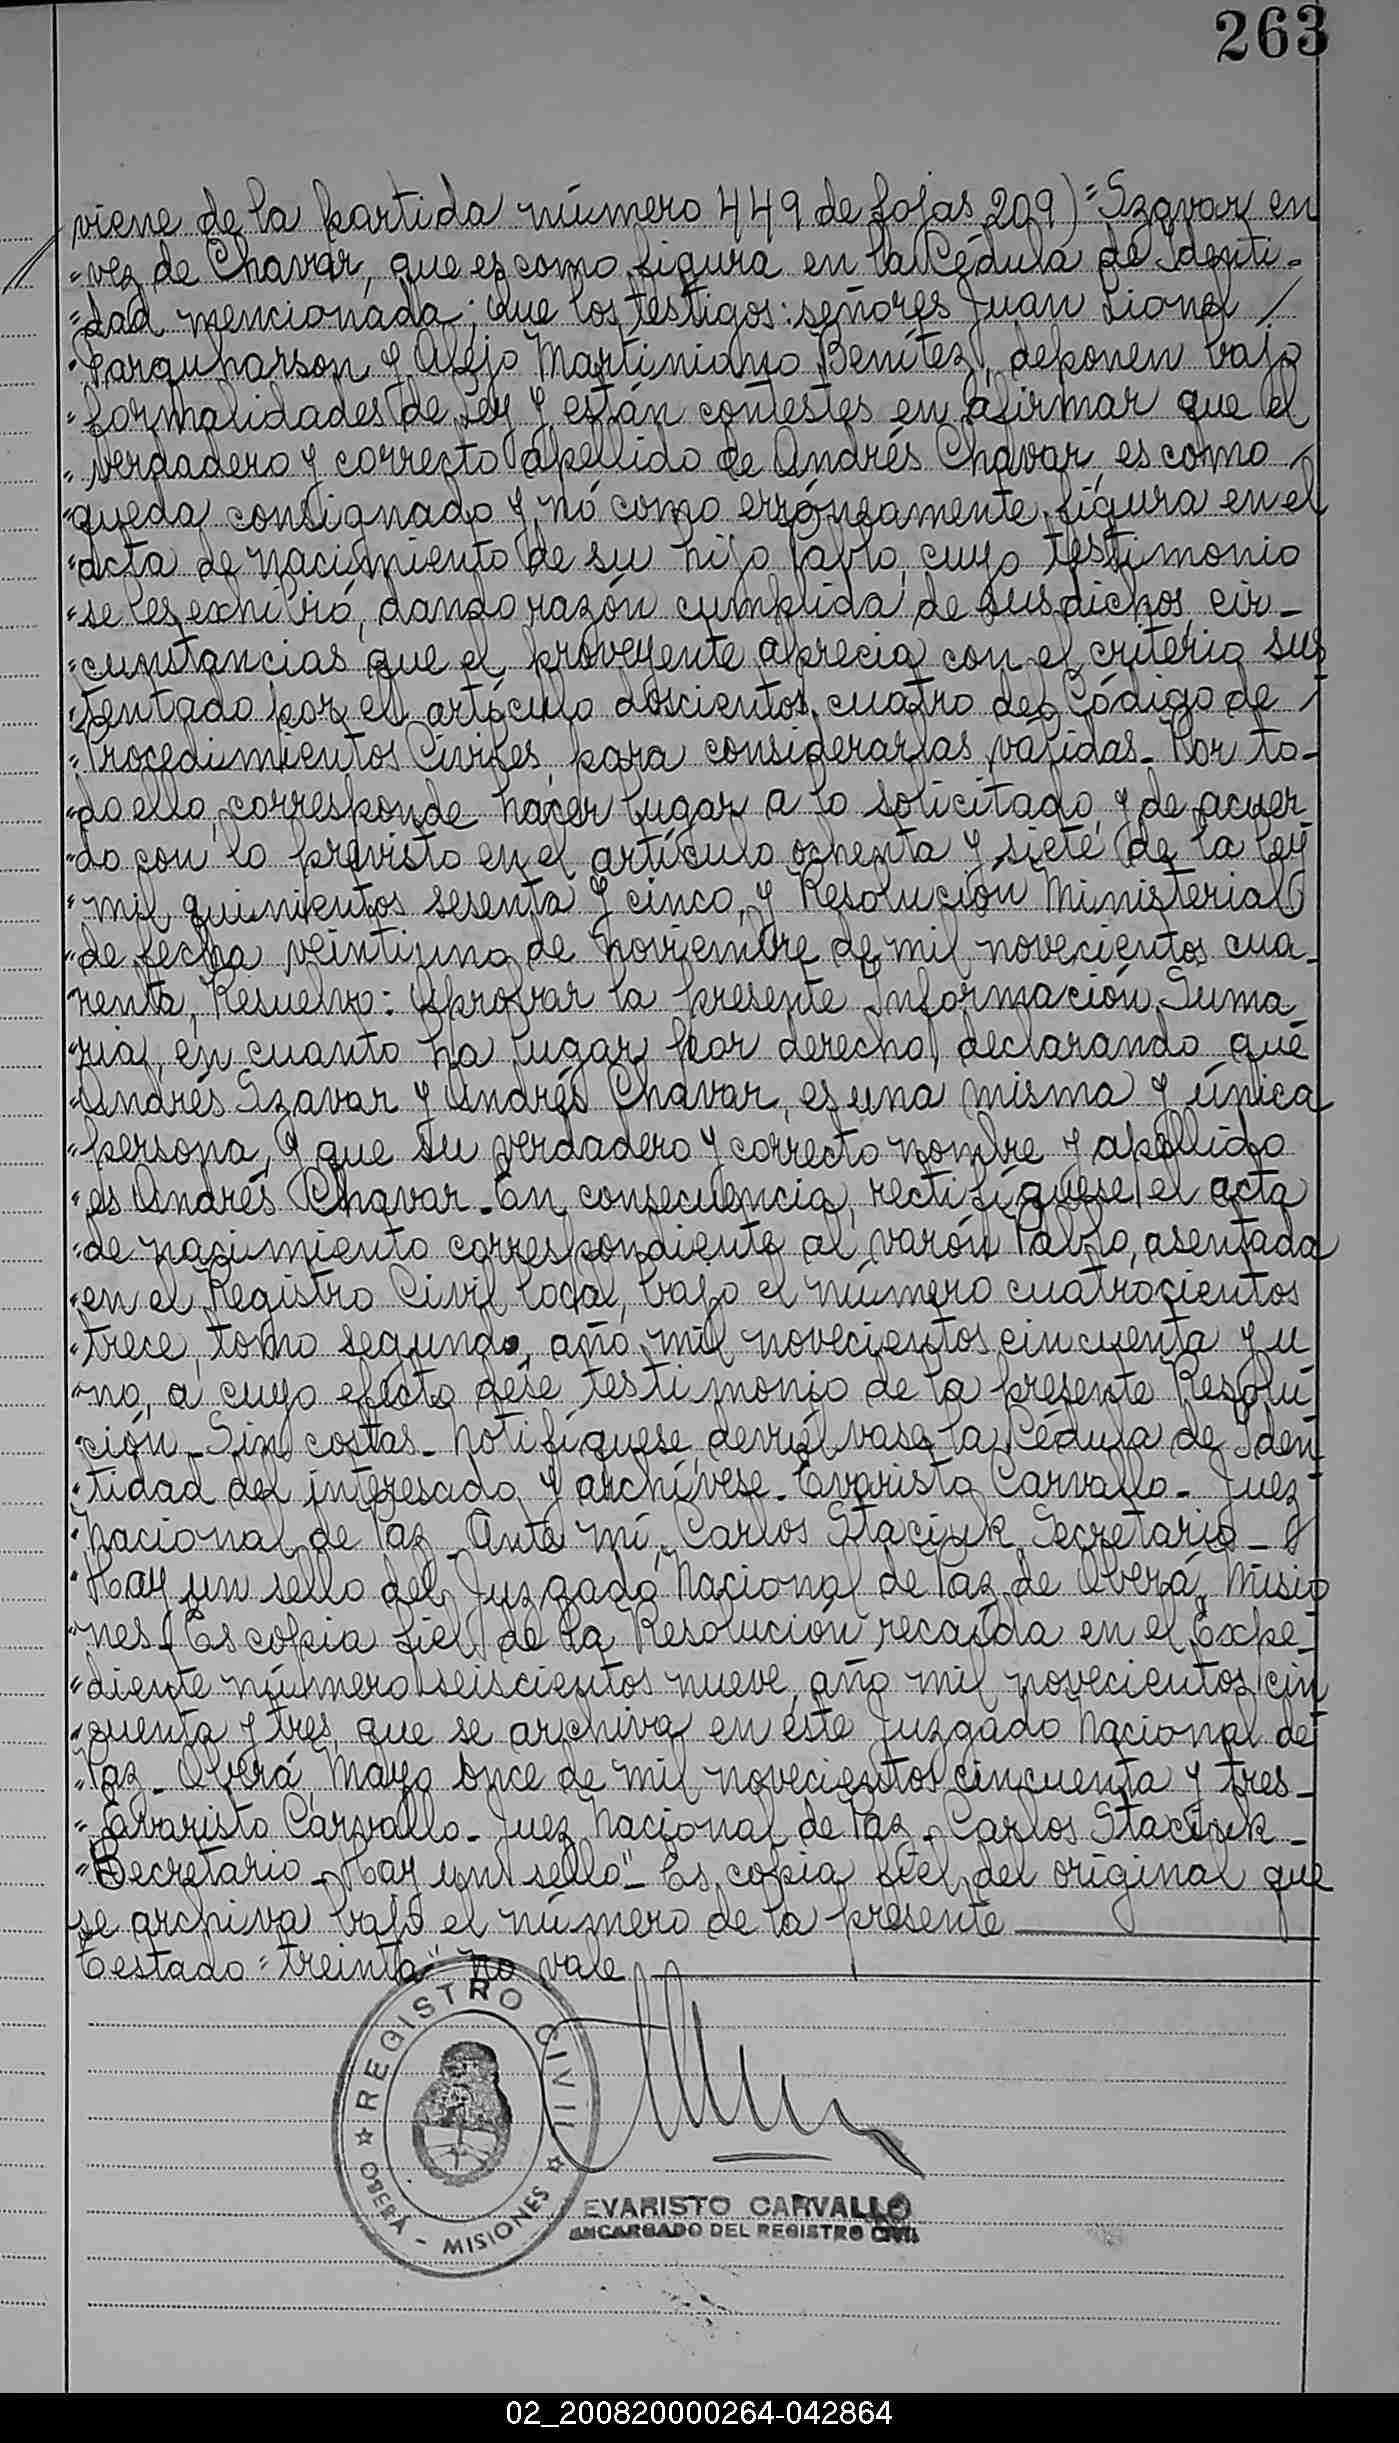 263
viene de la partida número 449 de fojas 209) "Szavar en
"vez de Chavar, que es como figura en la Cédula de Identi-
"dad mencionada; Que los testigos: señores Juan Lionel /
"Farquharson y Alejo Martiniano Benítez, deponen bajo
"formalidades de Ley y están contestes en afirmar que el
"verdadero y correcto apellido de Andrés Chavar, es como
"queda consignado y nó como erróneamente figura en el
"acta de nacimiento de su hijo Pablo, cuyo testimonio
"se les exhibió, dando razón cumplida de sus dichos, cir-
"cunstancias que el proveyente aprecia con el criterio sus
"tentado por el artículo doscientos cuatro del Código de /
"Procedimientos Civiles, para considerarlas válidas- Por to-
"do ello, corresponde hacer lugar a lo solicitado, y de acuer-
"do con lo previsto en el artículo ochenta y siete de la Ley
"mil quinientos sesenta y cinco, y Resolución Ministerial
"de fecha veintiuno de noviembre de mil novecientos cua-
"renta, Resuelvo: Aprobar la presente Información Suma
"ria, en cuanto ha lugar por derecho, declarando que
"Andrés Szavar y Andrés Chavar, es una misma y única
"persona, y que su verdadero y correcto nombre y apellido
"es Andrés Chavar.- En consecuencia, rectifíquese el acta
"de nacimiento correspondiente al varón Pablo, asentada
"en el Registro Civil local, bajo el número cuatrocientos
"trece, tomo segundo, año mil novecientos cincuenta y u
"no, a cuyo efecto dése testimonio de la presente Resolu
"ción- Sin costas- Notifíquese, devuélvase la Cédula de Iden
"tidad del interesado y archívese- Evaristo Carvallo- Juez
"Nacional de Paz- Ante mí, Carlos Staciuk, Secretario-
"Hay un sello del Juzgado Nacional de Paz de Oberá, Misio
"nes- Es copia fiel de la Resolución recaída en el Expe-
"diente número seiscientos nueve, año mil novecientos cin
"cuenta y tres, que se archiva en éste Juzgado Nacional de
"Paz- Oberá, Mayo once de mil novecientos cincuenta y tres-
"Evaristo Carvallo- Juez Nacional de Paz- Carlos Staciuk-
"Secretario- Hay un sello"- Es copia fiel del original que
se archiva bajo el número de la presente
Testado "treinta" no vale
REGISTRO CIVIL
OBERÁ - MISIONES
EVARISTO CARVALLO
ENCARGADO DEL REGISTRO CIVIL
02_200820000264-042864